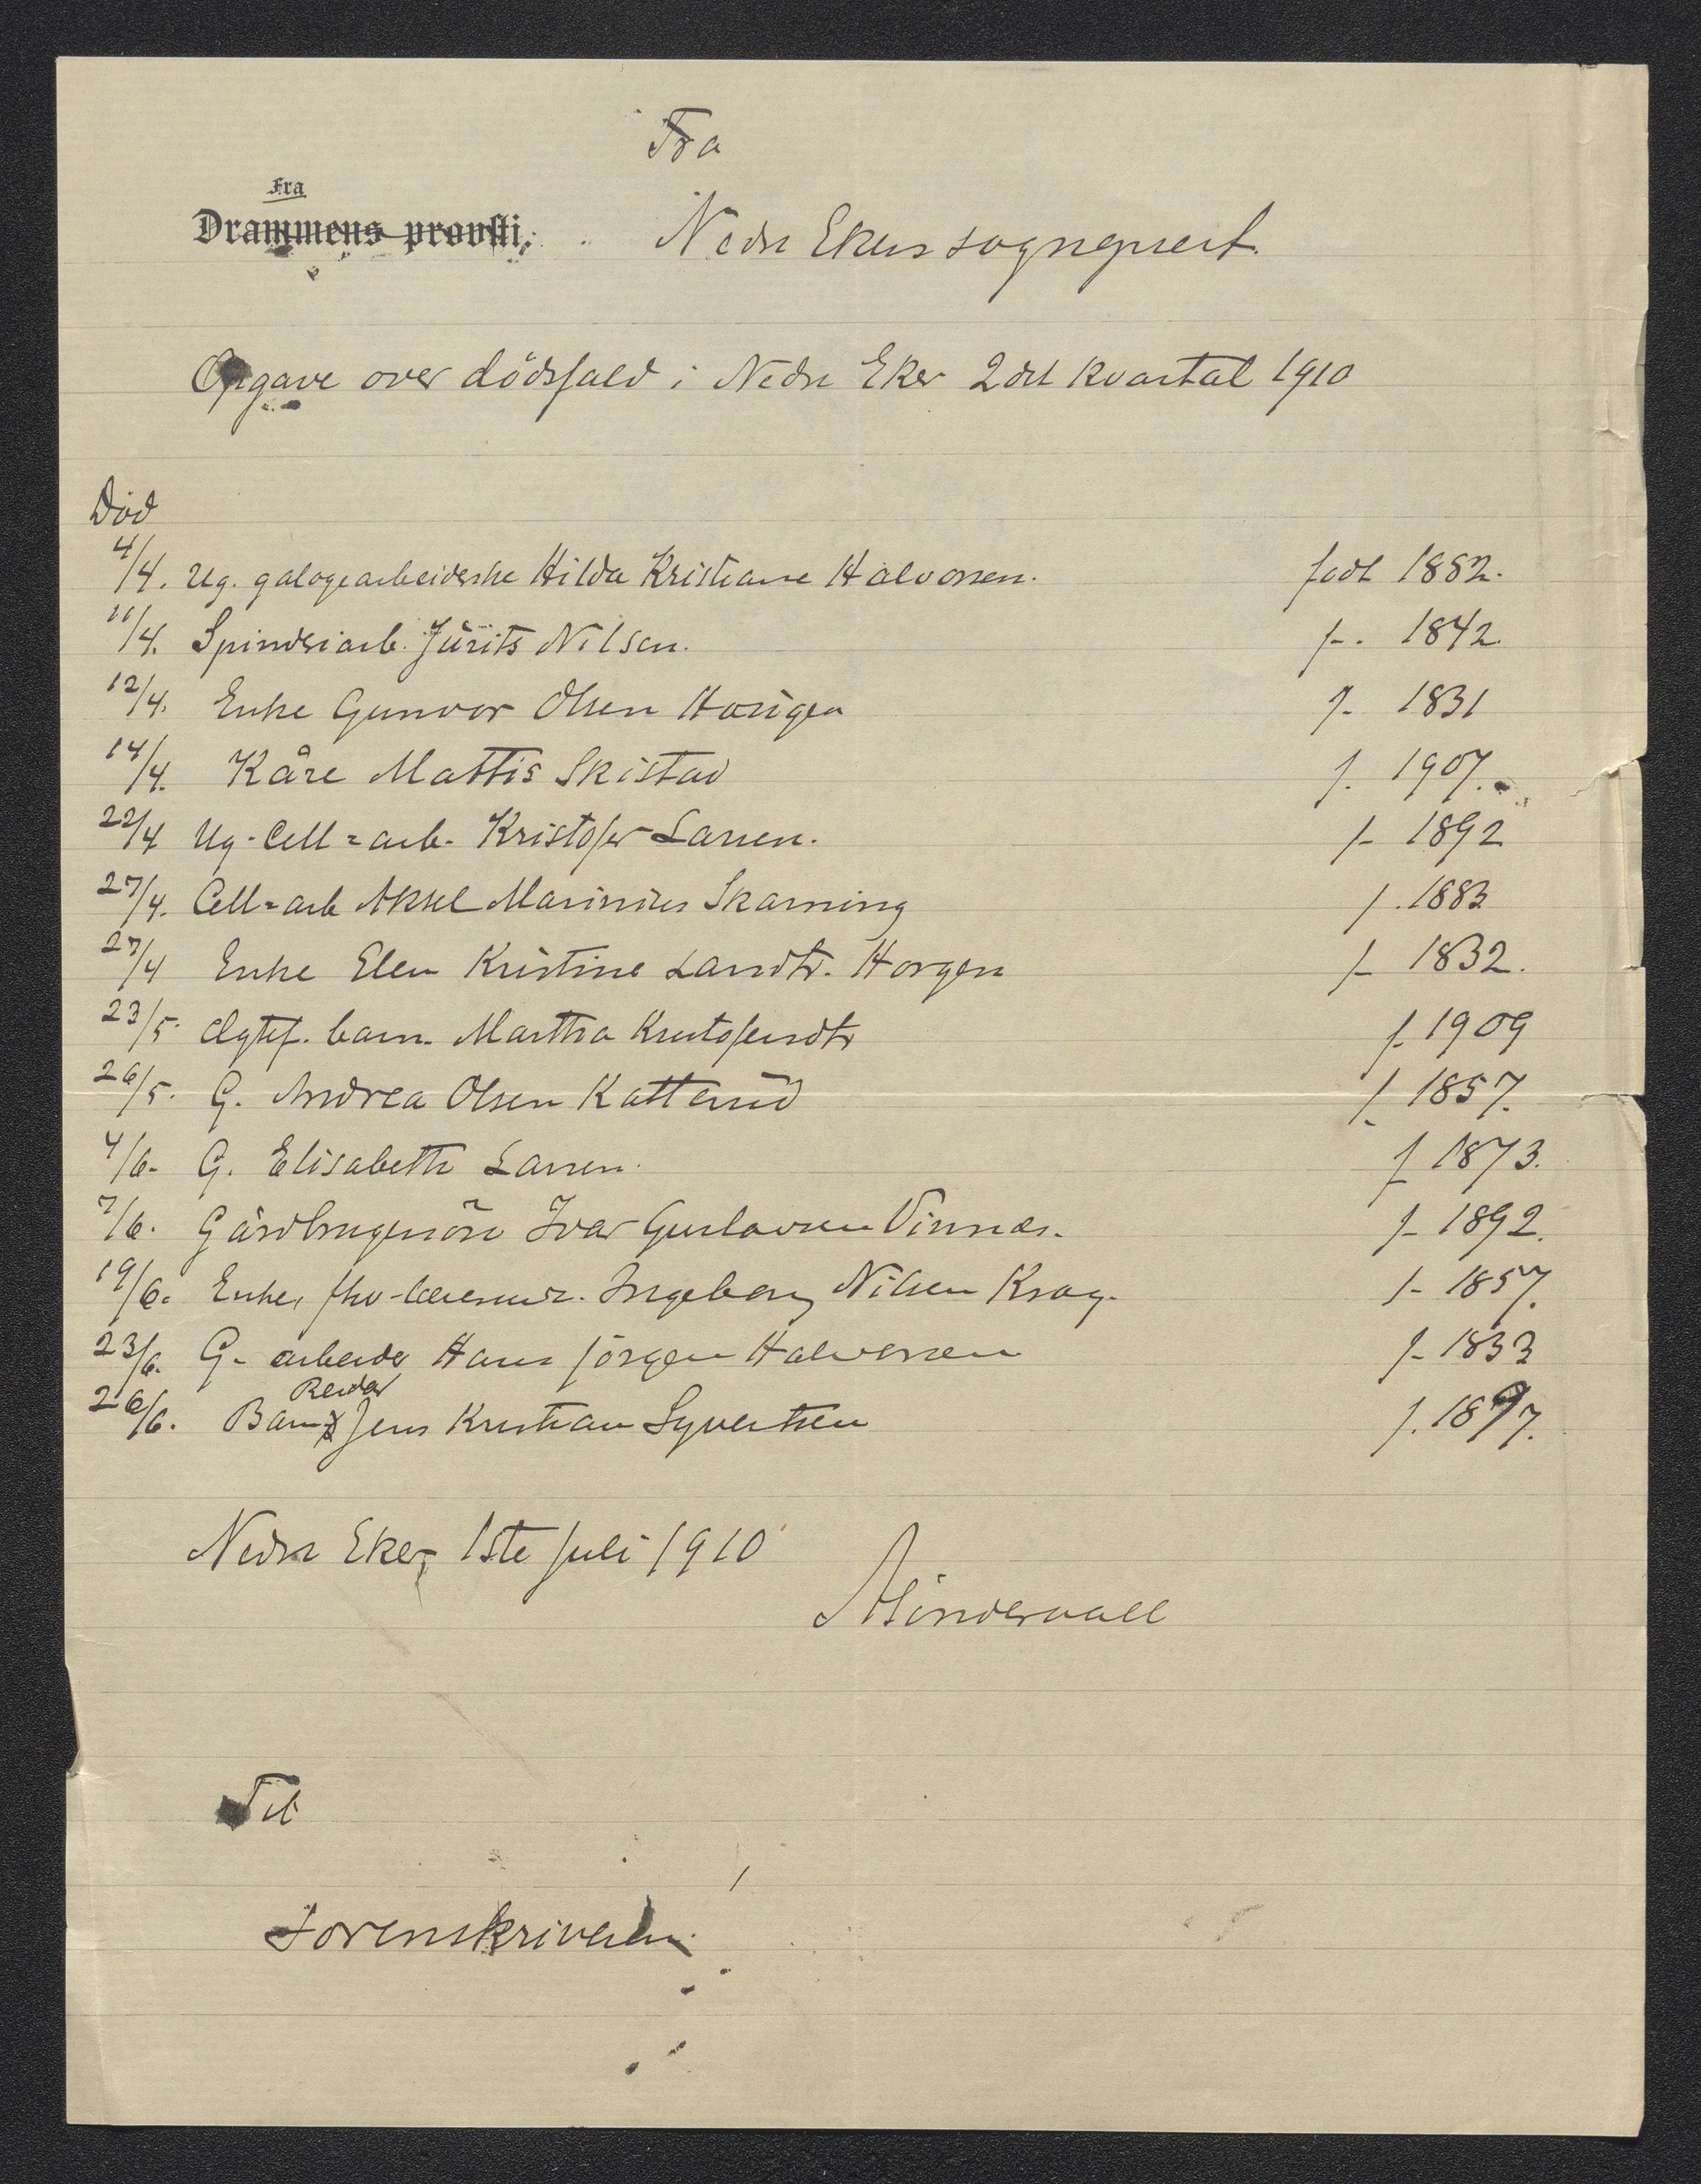 Fra
Fra
Drammens provsti.
Nedre Ekers sogneprest.
Opgave over dödsfald i Nedre Eker 2det kvartal 1910
Död
4/4. Ug. galogearbeiderske Hilda Kristiane Halvorsen. födt 1882.
11/4. Spinderiarb. Jürits Nilsen. f. 1842.
12/4. Enke Gunvor Olsen f. 1831
14/4. Kåre Mattis Skistad f. 1907.
22/4 Ug. Cell=arb. Kristofer Larsen. f. 1892
27/4. Cell=arb Aksel Marinius Skarning f. 1883
27/4 Enke Elen Kristine Larsdtr. Horgen f. 1832.
23/5. Ægtef. barn. Martha Kristofersdtr f. 1909
26/5. G. Andrea Olsen Katterud f. 1857.
4/6. G. Elisabeth Larsen. f. 1873.
7/6. Gårdbrugersön Ivar Gustavsen Vinnæs. f. 1892.
19/6. Enke, Ingeborg Nilsen Krog. f. 1857.
23/6. G. arbeider Hans Jörgen Halvorsen f. 1833
26/6. Barn Reidar Jens Kristian Syvertsen f. 1897.
Nedre Eker, 1ste juli 1910
Mindervall
Til
Sorenskriveren.